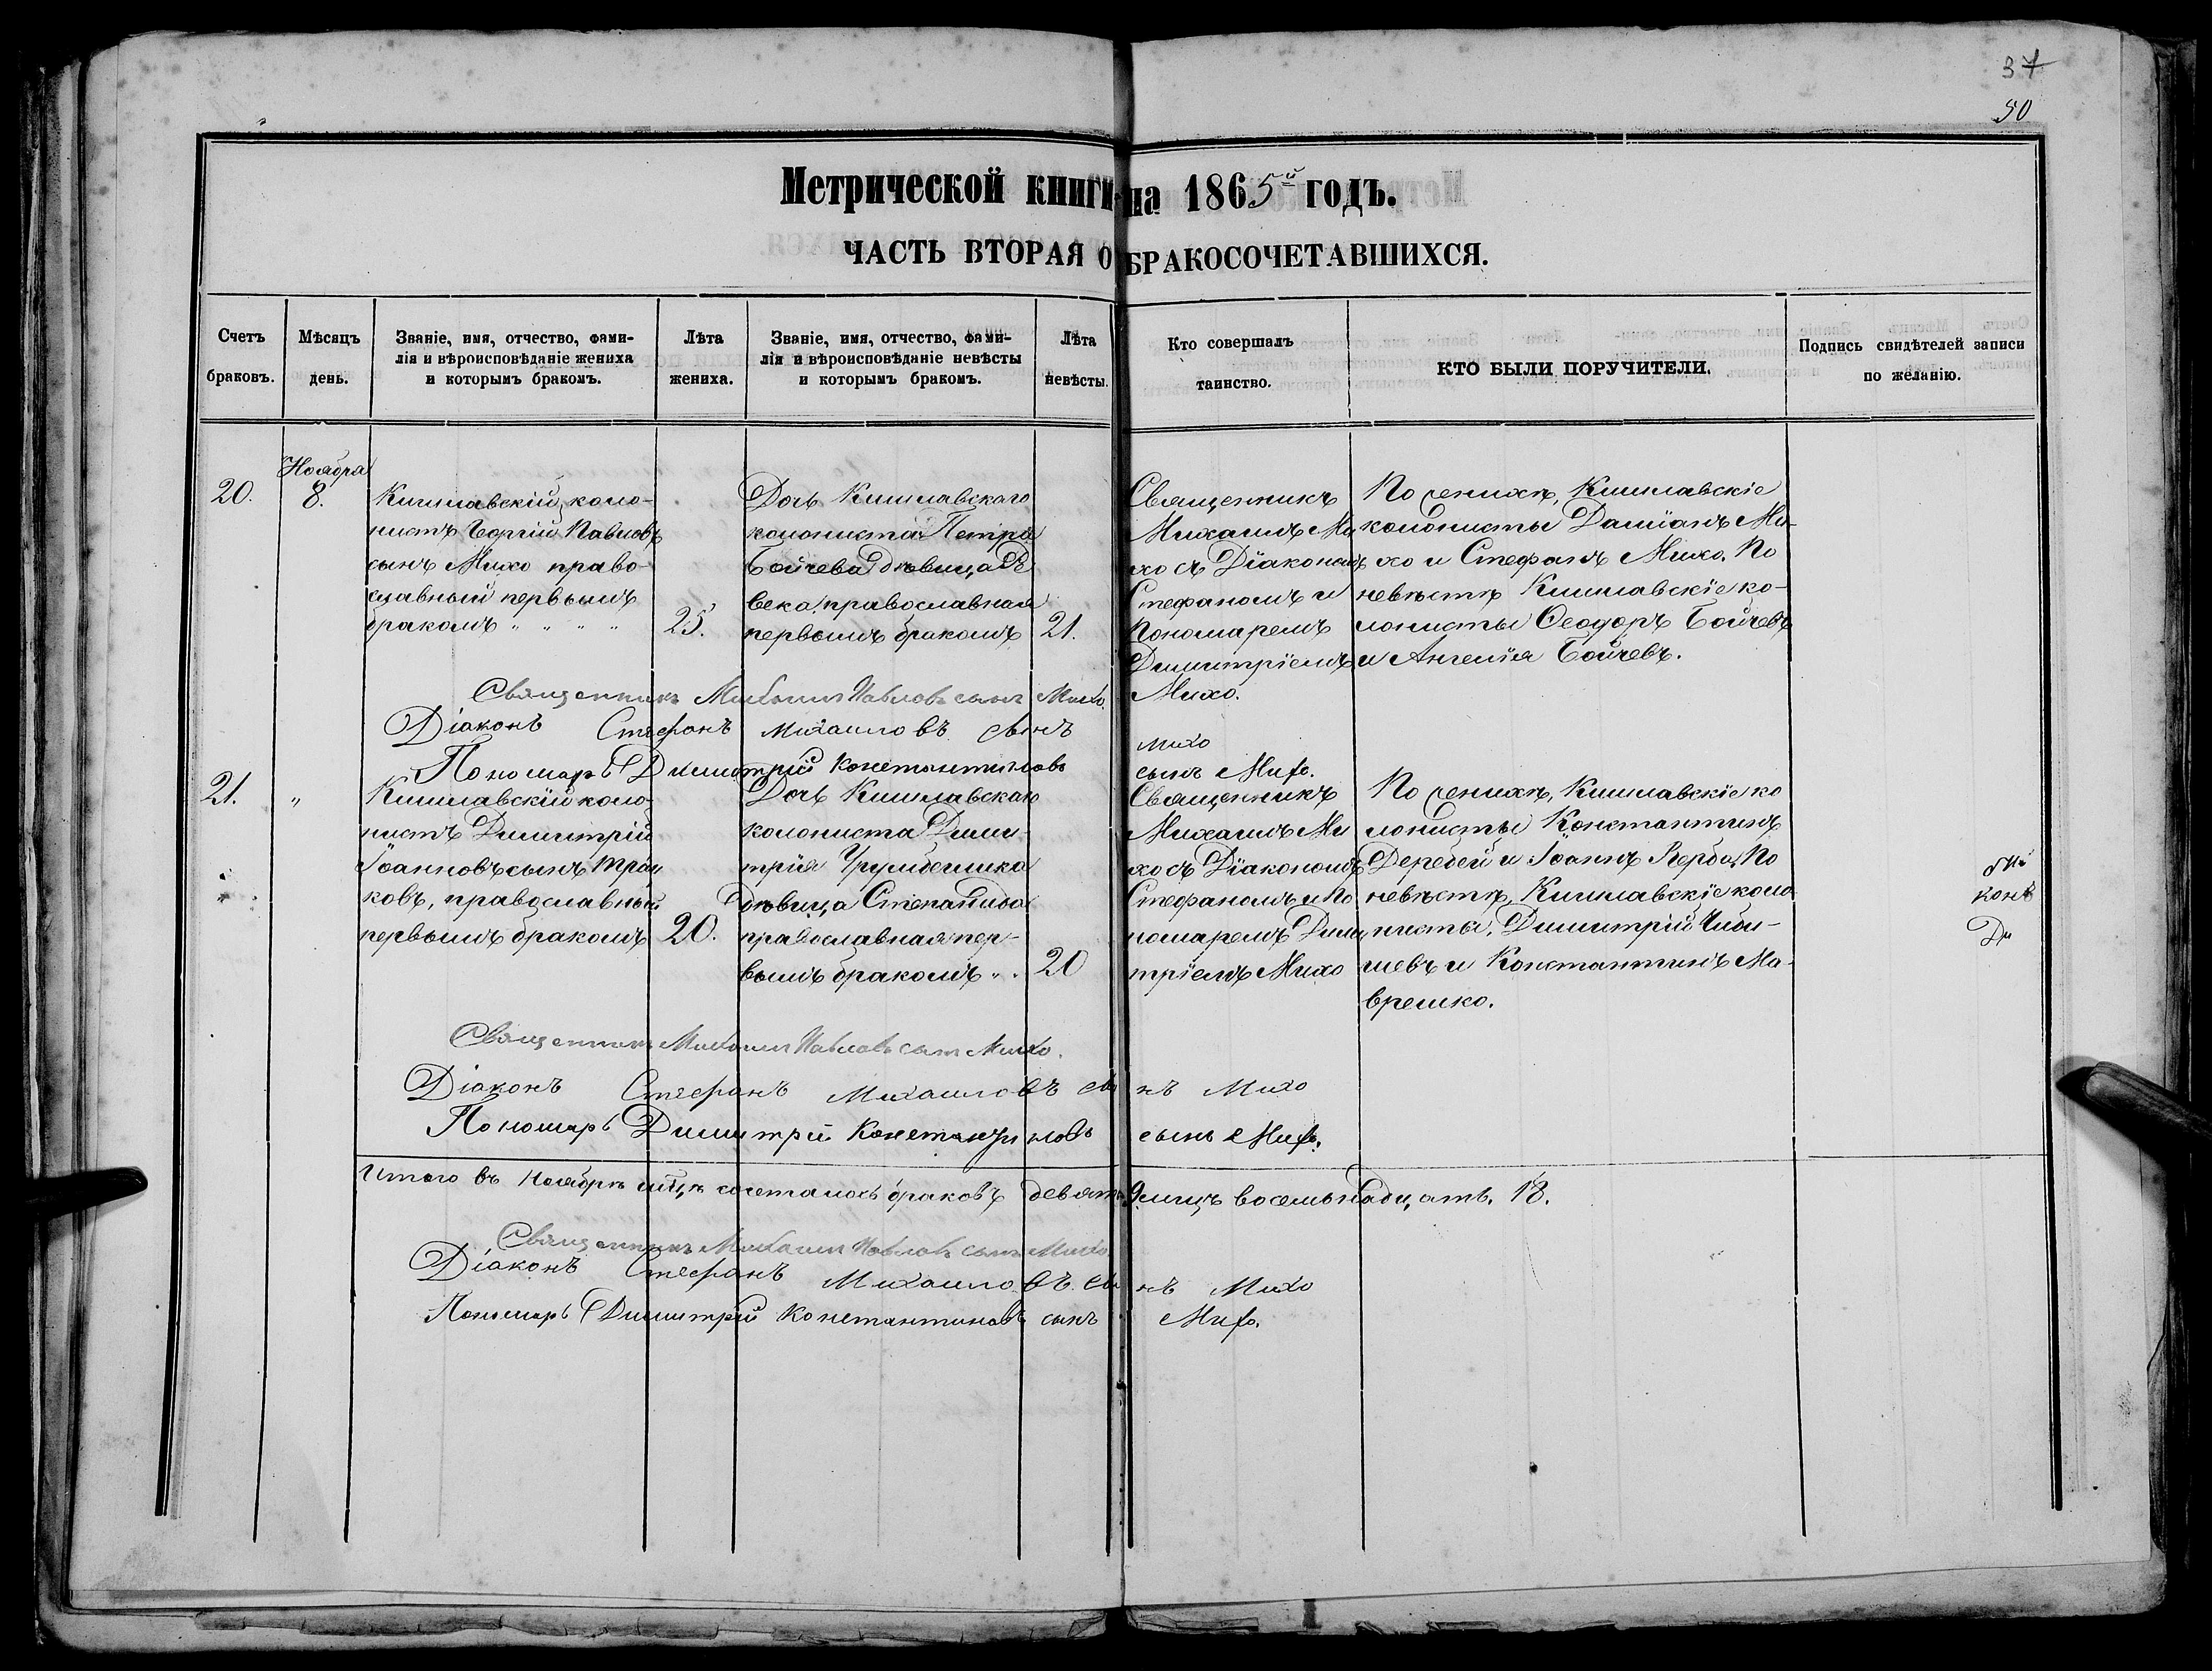 37
50
Метрической книги на 1865й годъ.
ЧАСТЬ ВТОРАЯ О БРАКОСОЧЕТАВШИХСЯ.
Счетъ браковъ.
Мѣсяцъ день.
Званіе, имя, отчество, фами-
лія и вѣроисповѣданіе жениха
и которымъ бракомъ.
Лѣта жениха.
Званіе, имя, отчество, фами-
лія и вѣроисповѣданіе невѣсты
и которымъ бракомъ.
Лѣта невѣсты.
Кто совершалъ
таинство.
КТО БЫЛИ ПОРУЧИТЕЛИ.
Подпись свидѣтелей записи
по желанію.
20.
Ноября
8.
Кишлавскій коло-
нистъ Георгій Павловъ
сынъ Михо право-
славный первымъ
бракомъ
25.
Дочь Кишлавскаго
колониста Петра
Бойчева дѣвица Де
века православная
первымъ бракомъ
21.
Священникъ
Михаилъ Ми
хо съ Діакономъ
Стефаномъ и
Пономаремъ
Димитріемъ
Михо.
По женихѣ, Кишлавскіе
колонисты Даміанъ Ми-
хо и Стефанъ Михо. По
невѣстѣ Кишлавскіе ко-
лонисты Ѳеодоръ Бойчевъ
и Ангелія Бойчевъ.
Священникъ Михаилъ Павловъ сынъ Михо.
Діаконъ Стефанъ Михаиловъ сынъ Михо
Пономарь Димитрій Константиновъ сынъ Михо.
21.
"
Кишлавскій коло-
нистъ Димитрій
Іоанновъ сынъ Трай
ковъ, православный
первымъ бракомъ
20.
Дочь Кишлавскаго
колониста Дими-
трія
дѣвица Степанида
православная пер-
вымъ бракомъ
20
Священникъ
Михаилъ Ми
хо съ Діакономъ
Стефаномъ и По
номаремъ Дими
тріемъ Михо
По женихѣ, Кишлавскіе ко
лонисты Константинъ
Деребей и Іоаннъ По
невѣстѣ, Кишлавскіе коло
нисты, Димитрій Чиби-
шевъ и Константинъ Ма-
врешко.
конъ
Ди
Священникъ Михаилъ Павловъ сынъ Михо.
Діаконъ Стефанъ Михаиловъ сынъ Михо
Пономарь Димитрій Константиновъ сынъ Михо.
Итого въ Ноябрѣ м-цѣ сочеталось браковъ девять 9 лицъ восемьнадцать. 18.
Священникъ Михаилъ Павловъ сынъ Михо.
Діаконъ Стефанъ Михаиловъ сынъ Михо
Пономарь Димитрій Константиновъ сынъ Михо.